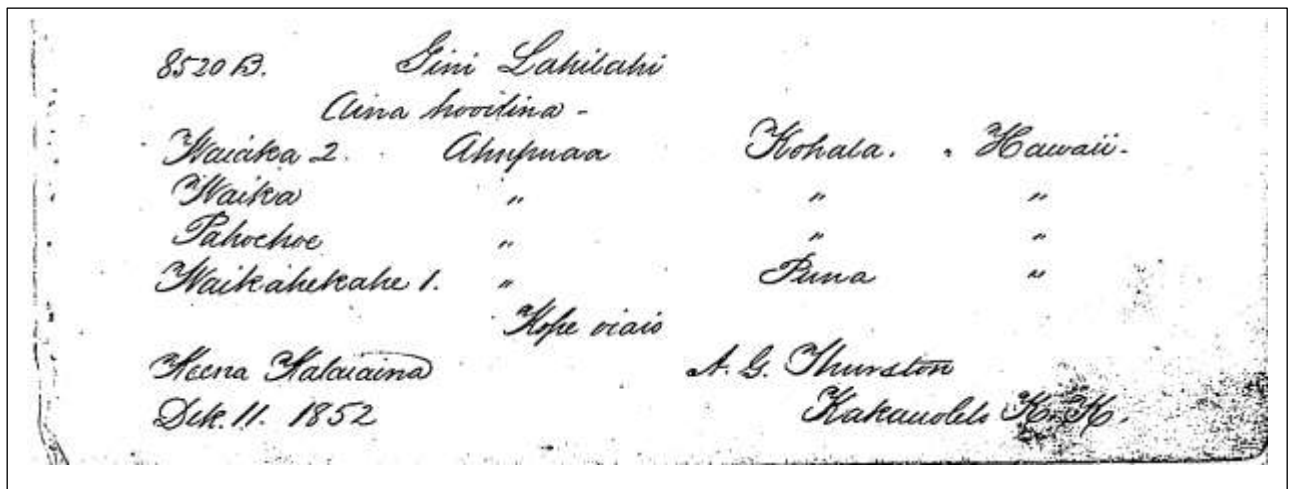 8520 B. Gini Lahilahi
Aina hooilina -
Waiaka 2. Ahupuaa Kohala. " Hawaii.
Waika " " "
Pahoehoe " " "
Waikahekahe 1. " Puna "
Kope oiaio
Keena Kalaiaina A. G. Thurston
Dek. 11. 1852 Kakauolelo K. K.